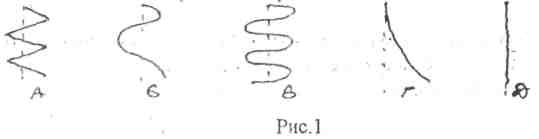 А Б В Г Д
Рис.1